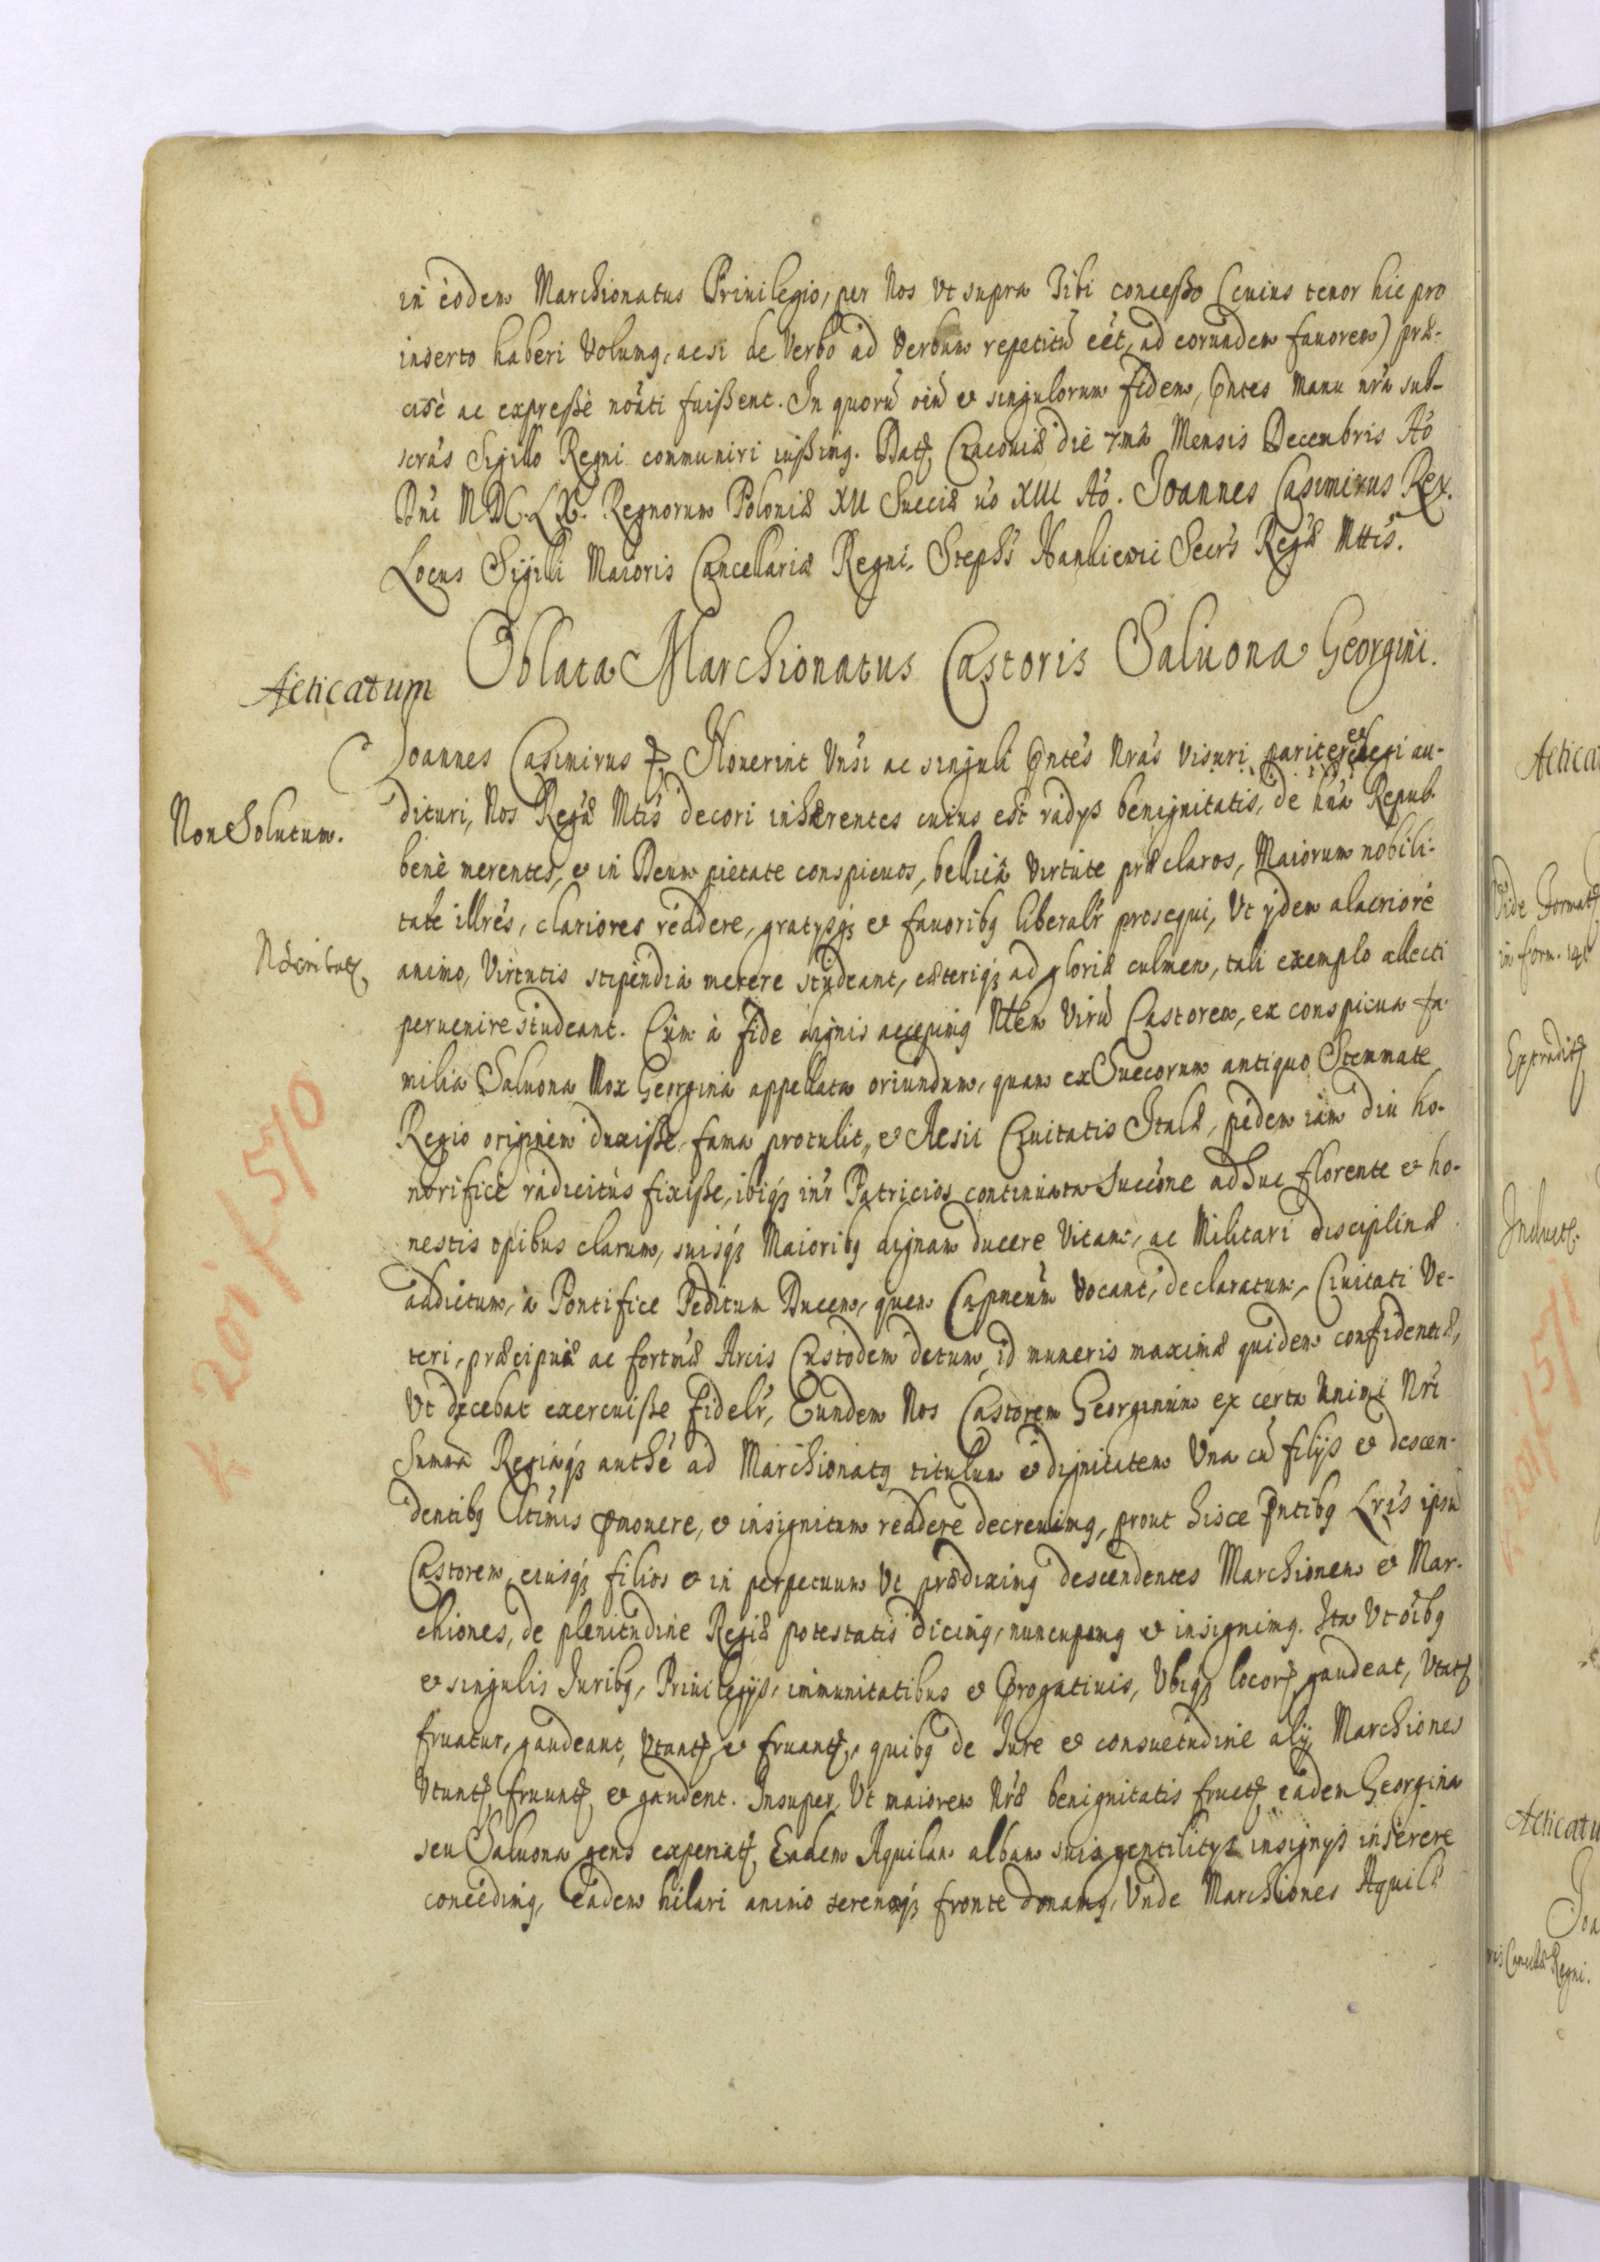 in eodem Marchionatus Priuilegio, per Nos Vt supra Tibi concesso (cuius tenor hic pro
inserto haberi Volumq, acsi de Verbo ad Verbum repetitũ eēt, ad eorundem fauorem) præ-
cisè ac expressè noāti fuissent. In quorũ oīũ et singulorum fidem, Pntes manu nrã sub-
scrās Sigillo Regni communiri iussimq. Datȝ Cracouiæ die 7mâ Mensis Decembris Aō
Dni MDCLX. Regnorum Poloniæ XII Sueciæ ũo XIII Aō. Joannes Casimirus Rex.
Locus Sigilli Maioris Cancellariæ Regni. Steph's Hankiewic Secr's Regiæ Mttis.
Oblata Marchionatus Castoris Saluona Georgini.
Acticatum
Joannes Casimirus Nouerint Vnsi ac singuli Pntes Nras Visuri pariter et legi au-
Non Solutum.
dituri, Nos Regiæ Mtis decori inhærentes cuius est radys benignitatis, de hnã Repub.
benè merentes, et in Deum pietate conspicuos, bellica Virtute præclaros, Maiorum nobili-
tate illres, clariores reddere, gratysqȝ et fauoribq liberalr prosequi, Vt ydem alacriore
animo, Virtutis stipendia merere studeant, cæteriqȝ ad gloriæ culmen, tali exemplo allecti
peruenire studeant. Cum à fide dignis accepimq Nlem Virũ Castorem, ex conspicua fa-
milia Saluona Mox Georgina appellata oriundum, quam ex Suecorum antiquo Stemmate
Regio originem duxisse fama protulit, et Aesii Ciuitatis Italæ, pedem iam diu ho-
norificè radicitus fixisse, ibiqȝ intr Patricios continuata Succone adhuc florente et ho-
nestis opibus clarum, suisqȝ Maioribq dignam ducere Vitam, ac Militari disciplinæ
addictum, à Pontifice Peditum Ducem, quem Capneum Vocant, declaratum, Ciuitati Ve-
teri, præcipuæ ac fortmæ Arcis Custodem datum, id muneris maximæ quidem confidentiæ,
Vt decebat exercuisse fidelr, Eundem Nos Castorem Georginum ex certa Animi Nri
Summa Regiaqȝ authē ad Marchionatq titulum et dignitatem Vna cũ filijs et descen-
dentibq ltimis Pmouere, et insignitum reddere decreuimq, prout hisce Pntibq Lris ipsũ
Castorem, eiusqȝ filios et in perpetuum Vt prædiximq descendentes Marchionem et Mar-
chiones, de plenitudine Regiæ potestatis dicimq, nuncupamq et insignimq. Ita Vt oībq
et singulis Juribq, Priuilegijs, immunitatibus et Progatiuis, Vbiqȝ locorȝ gaudeat, Vtatȝ
fruatur, gaudeant, Vtantȝ et fruantȝ, quibq de Jure et consuetudine alij Marchiones
Vtuntȝ fruuntȝ et gaudent. Insuper, Vt maiorem Nræ benignitatis fructȝ eadem Georgina
seu Saluona gens experiatȝ, Eadem Aquilam albam suis gentilitijs insignijs inserere
concedimq, eadem hilari animo serenaqȝ fronte donamq, Vnde Marchiones Aquilæ
k 201/570
k 201/571
Vide Formatȝ
Expeditȝ